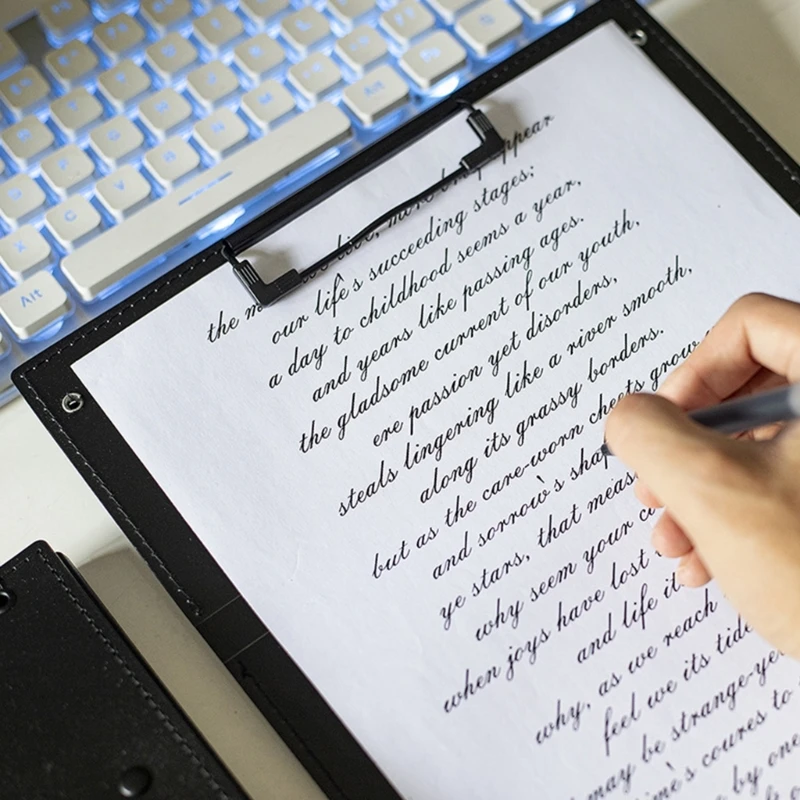 Alt
Alt
X C V M
the m we live, more appear
our life's succeeding stages;
a day to childhood seems a year,
and years like passing ages.
the gladsome current of our youth,
ere passion yet disorders,
steals lingering like a river smooth,
along its grassy borders.
but as the care-worn cheets grow
and sorrow's shaf
ye stars, that meas
why seem your co
when joys have lost
and life it
why, as we reach
feel we its tide
may be strange-ye
ime's coures to
by one